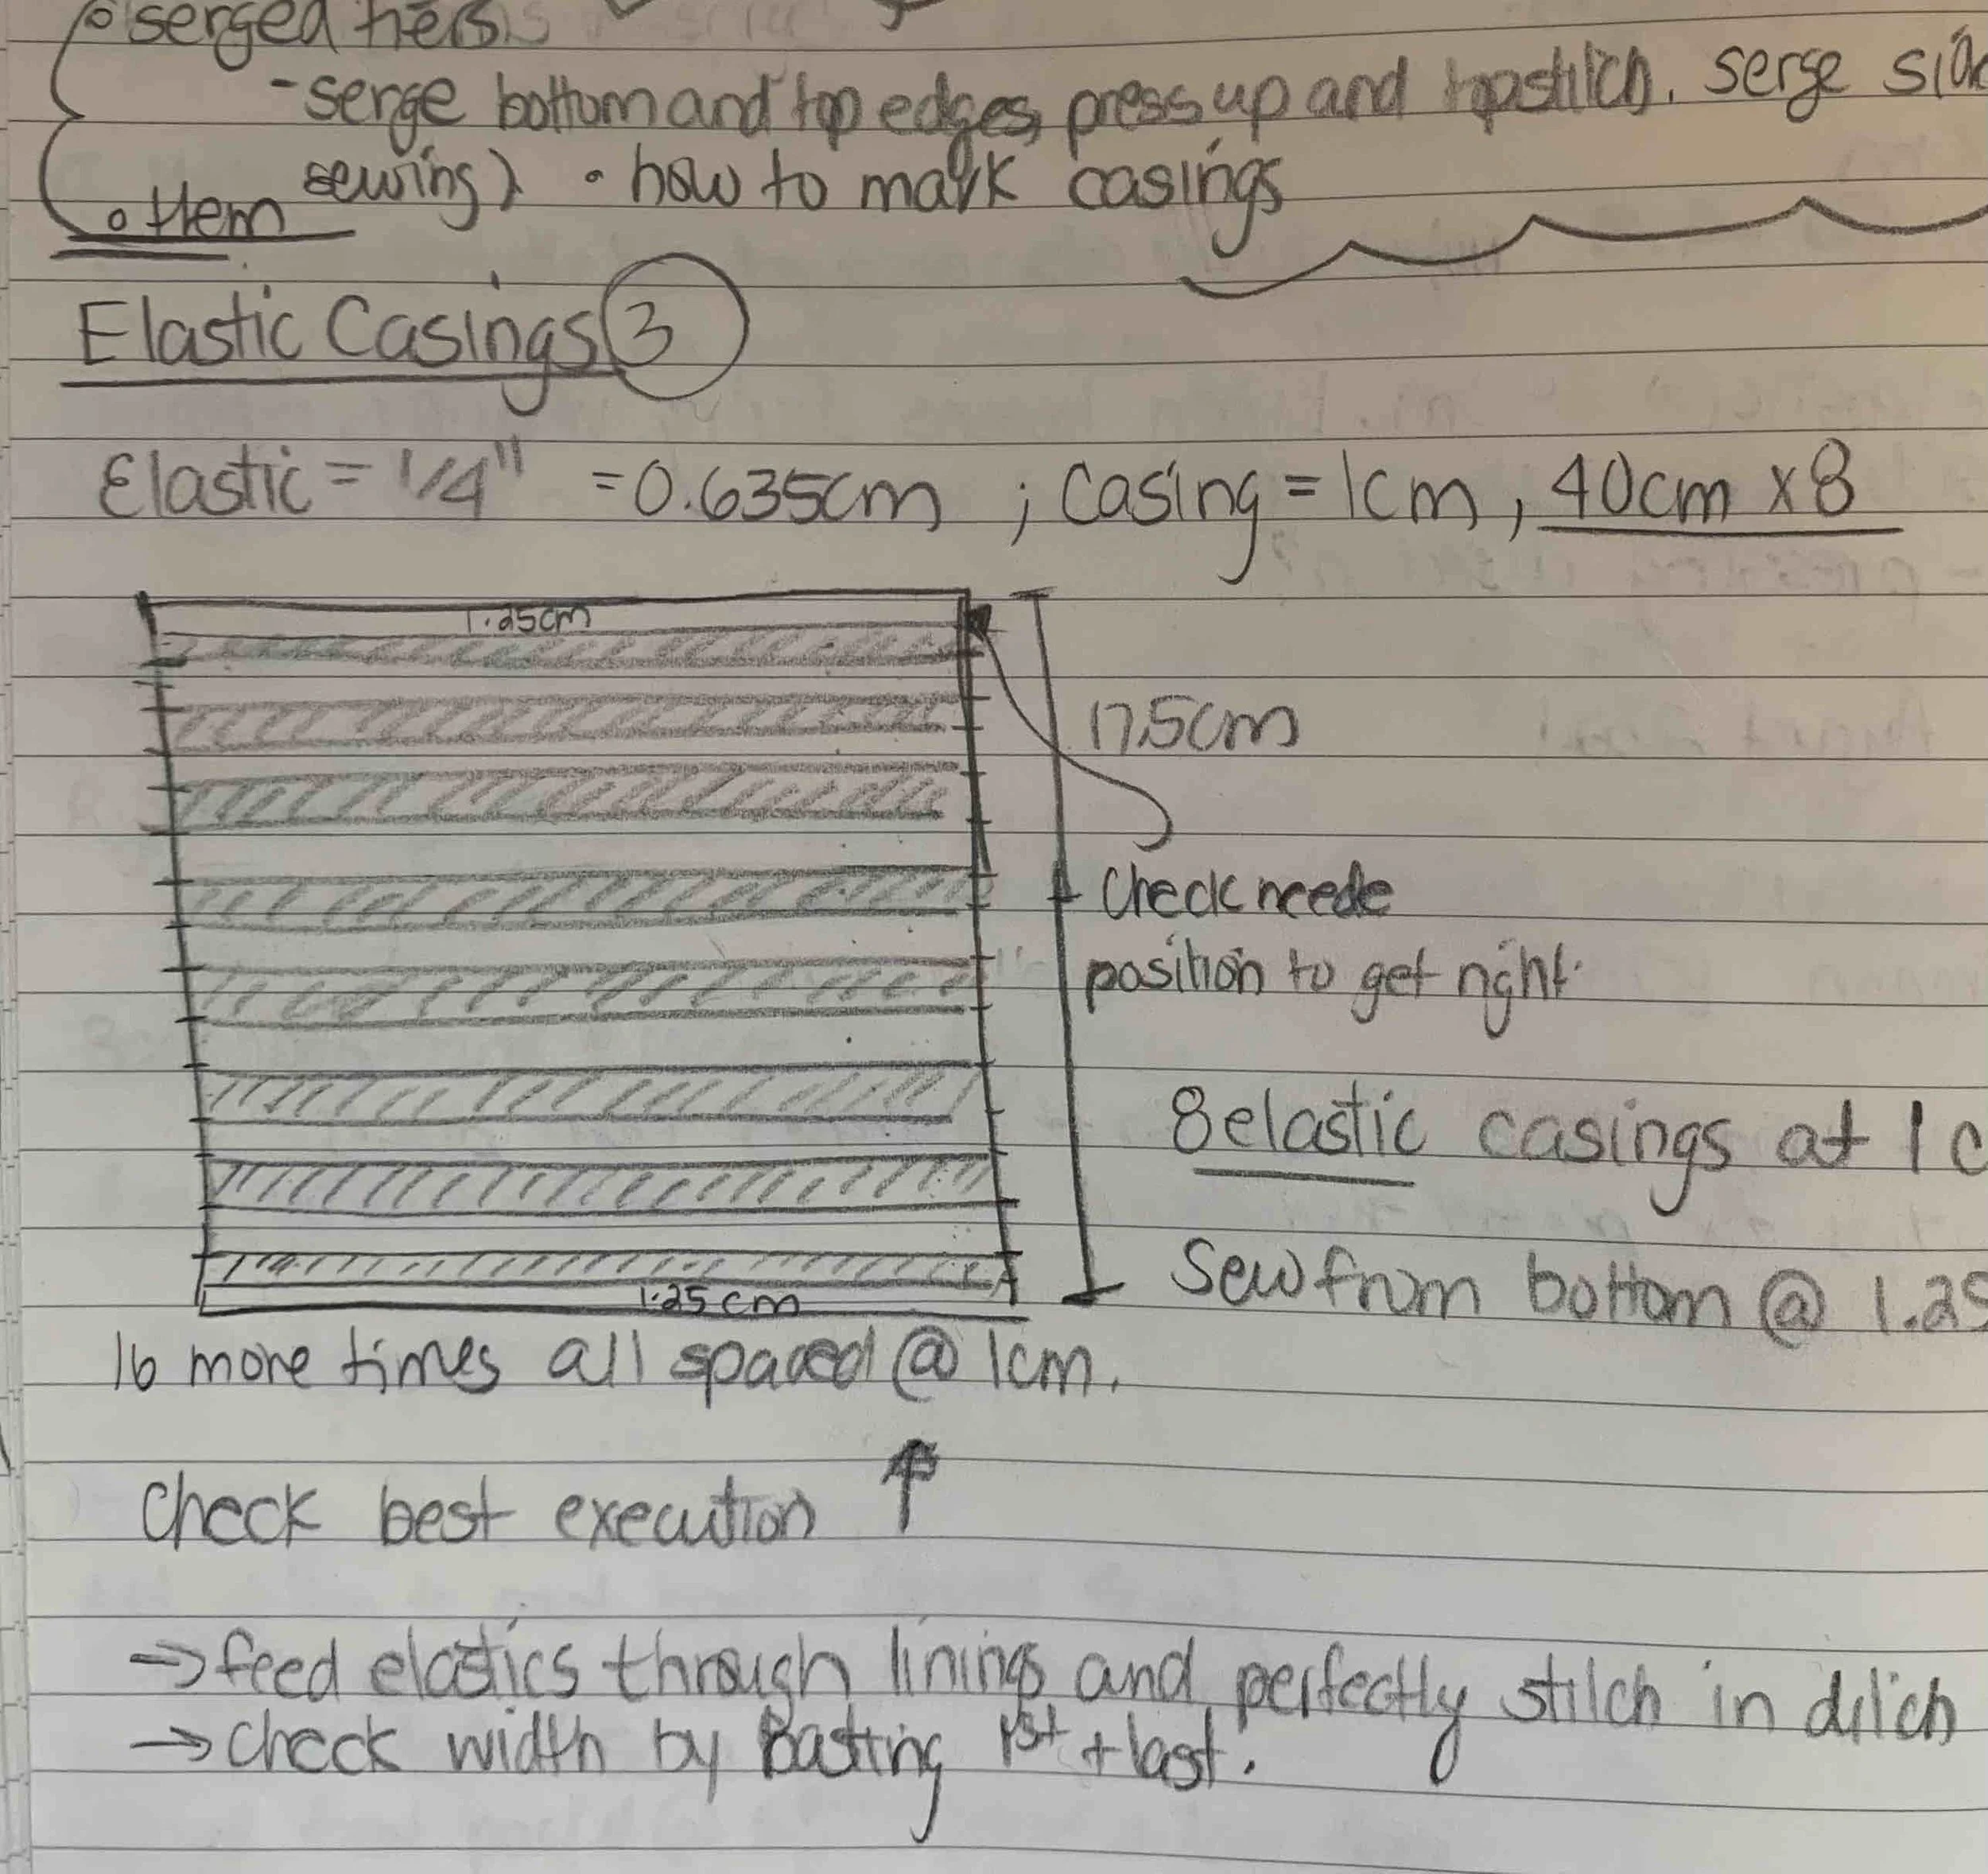 serged tiers
- serge bottom and top edges, press up and topstitch. serge
sewing) • how to mark casings
Hem
Elastic Casings 3
Elastic = 1/4" = 0.635cm ; Casing = 1cm, 40cm x 8
1.25cm
17.5cm
Check neede
position to get right.
8 elastic casings at 1
Sew from bottom @ 1.25
1.25 cm
16 more times all spaced @ 1cm.
Check best execution ↑
→ feed elastics through linings and perfectly stitch in ditch
→ check width by Basting 1st + last.